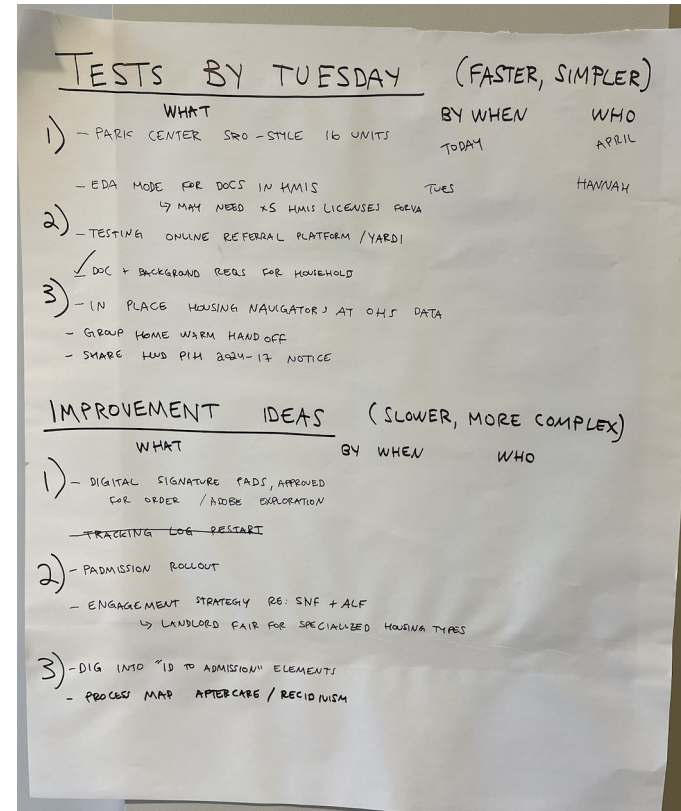 TESTS BY TUESDAY (FASTER, SIMPLER)
WHAT BY WHEN WHO
1) - PARK CENTER SRO-STYLE 16 UNITS TODAY APRIL
- EDA MODE FOR DOCS IN HMIS TUES HANNAH
↳ MAY NEED x5 HMIS LICENSES FOR VA
2) - TESTING ONLINE REFERRAL PLATFORM / YARDI
✓ DOC + BACKGROUND REQS FOR HOUSEHOLD
3) - IN PLACE HOUSING NAVIGATORS AT OHS DATA
- GROUP HOME WARM HAND OFF
- SHARE HUD PIH 2024-17 NOTICE
IMPROVEMENT IDEAS (SLOWER, MORE COMPLEX)
WHAT BY WHEN WHO
1) - DIGITAL SIGNATURE PADS, APPROVED
FOR ORDER / ADOBE EXPLORATION
- TRACKING LOG RESTART
2) - PADMISSION ROLLOUT
- ENGAGEMENT STRATEGY RE: SNF + ALF
↳ LANDLORD FAIR FOR SPECIALIZED HOUSING TYPES
3) - DIG INTO "ID TO ADMISSION" ELEMENTS
- PROCESS MAP AFTERCARE / RECIDIVISM